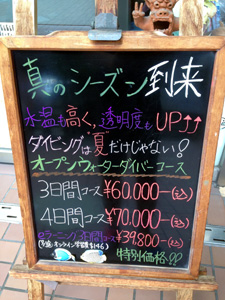 真のシーズン到来
水温も高く，透明度もUP↑↑
ダイビングは"夏"だけじゃない！
オープンウォーターダイバーコース
3日間コース ¥60.000-(税込)
4日間コース ¥70.000-(税込)
eラーニング 3日間コース ¥39.800-(税込)
特別価格!!